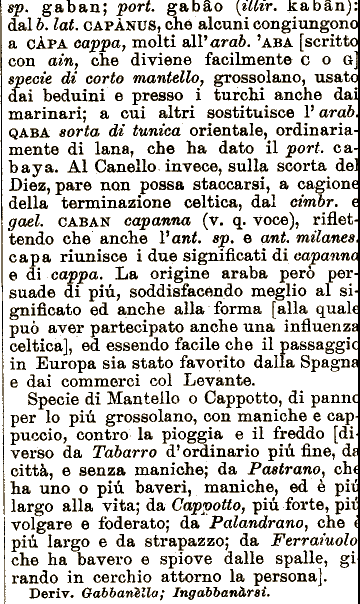 sp. gaban; port. gabão (illir. kabân):
dal b. lat. CAPÀNUS, che alcuni congiungono
a CÀPA cappa, molti all'arab. 'ABA [scritto
con ain, che diviene facilmente C o G]
specie di corto mantello, grossolano, usato
dai beduini e presso i turchi anche dai
marinari; a cui altri sostituisce l'arab.
QABA sorta di tunica orientale, ordinaria-
mente di lana, che ha dato il port. ca-
baya. Al Canello invece, sulla scorta del
Diez, pare non possa staccarsi, a cagione
della terminazione celtica, dal cimbr. e
gael. CABAN capanna (v. q. voce), riflet-
tendo che anche l'ant. sp. e ant. milanes.
capa riunisce i due significati di capanna
e di cappa. La origine araba però per-
suade di piú, soddisfacendo meglio al si-
gnificato ed anche alla forma [alla quale
può aver partecipato anche una influenza
celtica], ed essendo facile che il passaggio
in Europa sia stato favorito dalla Spagna
e dai commerci col Levante.
Specie di Mantello o Cappotto, di panno
per lo piú grossolano, con maniche e cap-
puccio, contro la pioggia e il freddo [di-
verso da Tabarro d'ordinario piú fine, da
città, e senza maniche; da Pastrano, che
ha uno o piú baveri, maniche, ed è piú
largo alla vita; da Cappotto, piú forte, piú
volgare e foderato; da Palandrano, che è
piú largo e da strapazzo; da Ferraiuolo
che ha bavero e spiove dalle spalle, gi-
rando in cerchio attorno la persona].
Deriv. Gabbanèlla; Ingabbanàrsi.